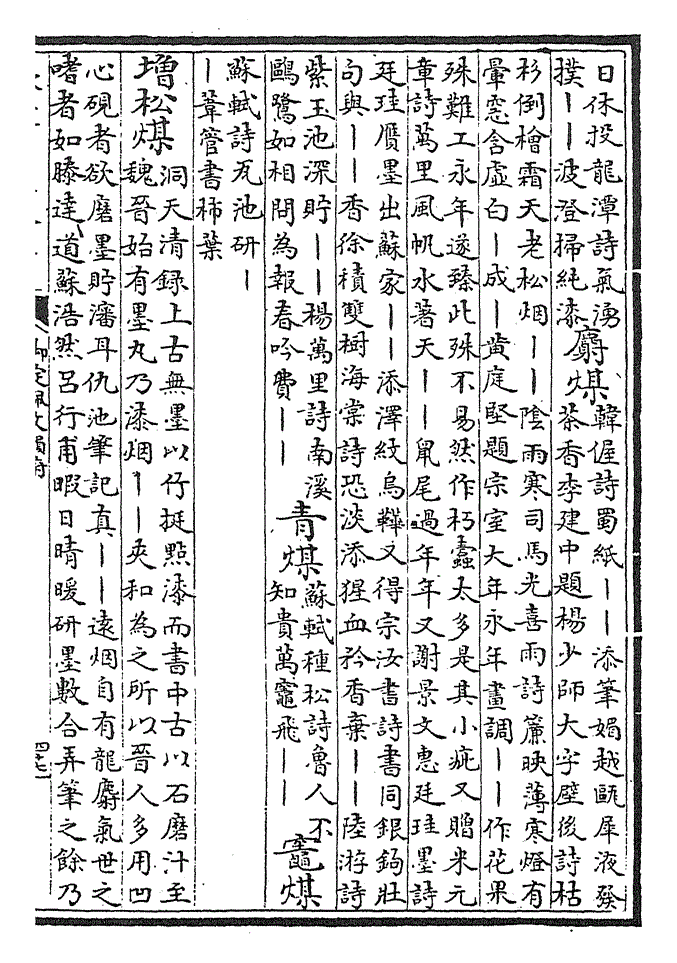 日休投龍潭詩氣湧
撲丨丨波澄掃純漆
麝煤
韓偓詩蜀紙丨丨添筆媚越甌犀液發
茶香李建中題楊少師大字壁後詩枯
杉倒檜霜天老松烟丨丨陰雨寒司馬光喜雨詩簾映薄寒燈有
暈窓含虚白丨成丨黄庭堅題宗室大年永年畫調丨丨作花果
殊難工永年遂臻此殊不易然作朽蠧太多是其小疵又贈米元
章詩萬里風帆水著天丨丨鼠尾過年年又謝景文惠廷珪墨詩
廷珪贗墨出蘇家丨丨添澤紋烏鞾又得宗汝書詩書同銀鉤壯
句與丨丨香徐積雙樹海棠詩恐淡添猩血矜香棄丨丨陸游詩
紫玉池深貯丨丨楊萬里詩南溪
鷗鷺如相問為報春吟費丨丨
青煤
蘇軾種松詩魯人不
知貴萬竈飛丨丨
竈煤
蘇軾詩瓦池研丨
丨葦管書柿葉
增松煤
洞天清録上古無墨以竹挺點漆而書中古以石磨汁至
魏晉始有墨丸乃漆烟丨丨夾和為之所以晉人多用凹
心硯者欲磨墨貯瀋耳仇池筆記真丨丨遠烟自有龍麝氣世之
嗜者如滕達道蘇浩然呂行甫暇日晴暖研墨數合弄筆之餘乃
御定佩文韻府